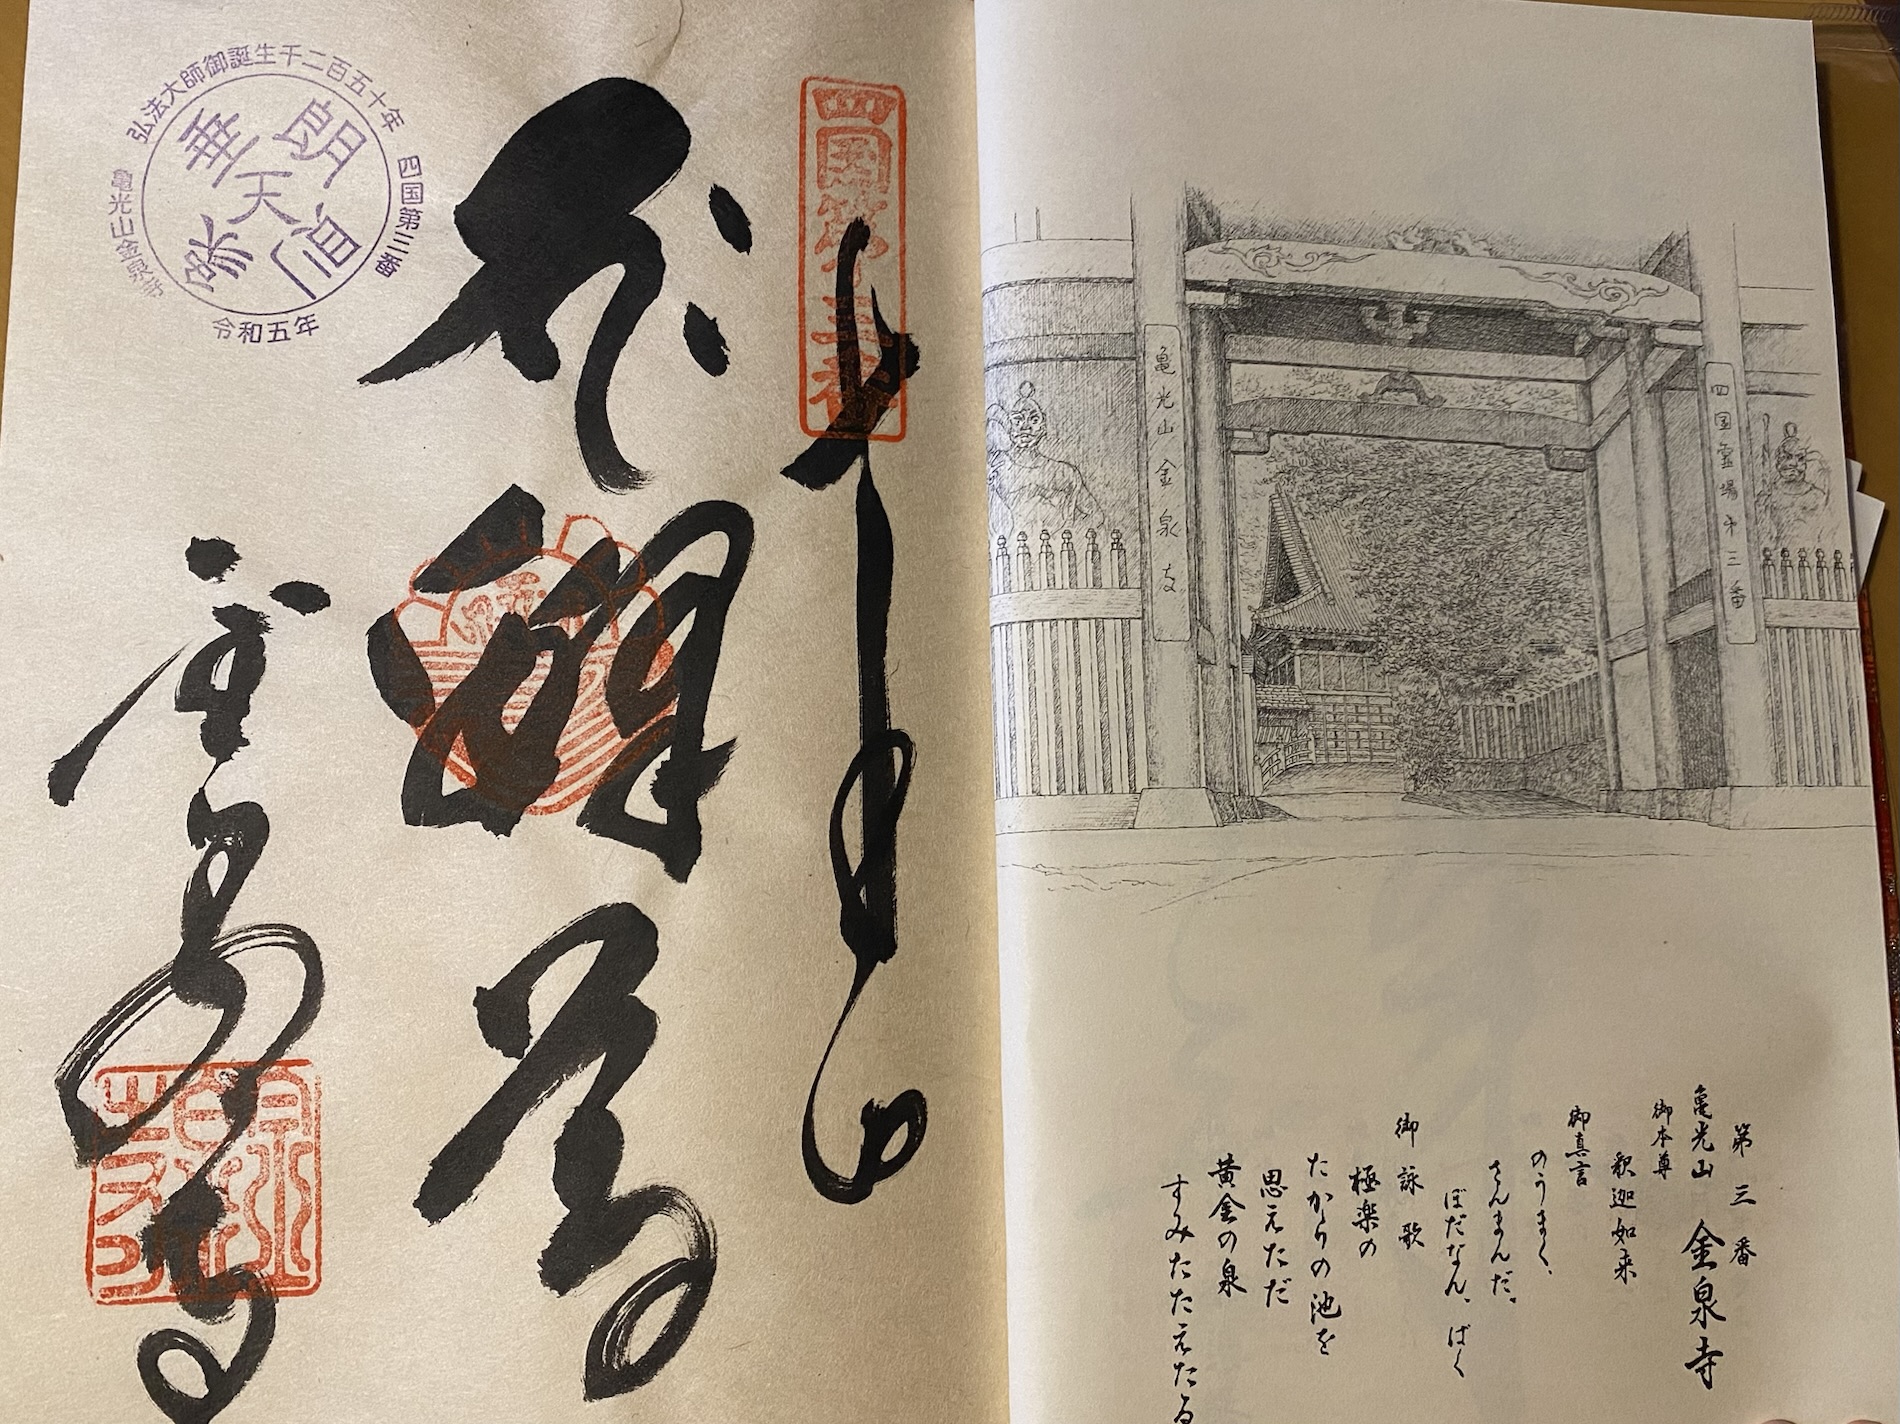 四国第三番
奉納
弘法大師御誕生千二百五十年
四国第三番
亀光山金泉寺
令和五年
金泉寺
四国霊場第三番
亀光山金泉寺
第三番
亀光山 金泉寺
御本尊
釈迦如来
御真言
のうまく、
さんまんだ、
ぼだなん、ばく
御詠歌
極楽の
たからの池を
思えただ
黄金の泉
すみたたえたる